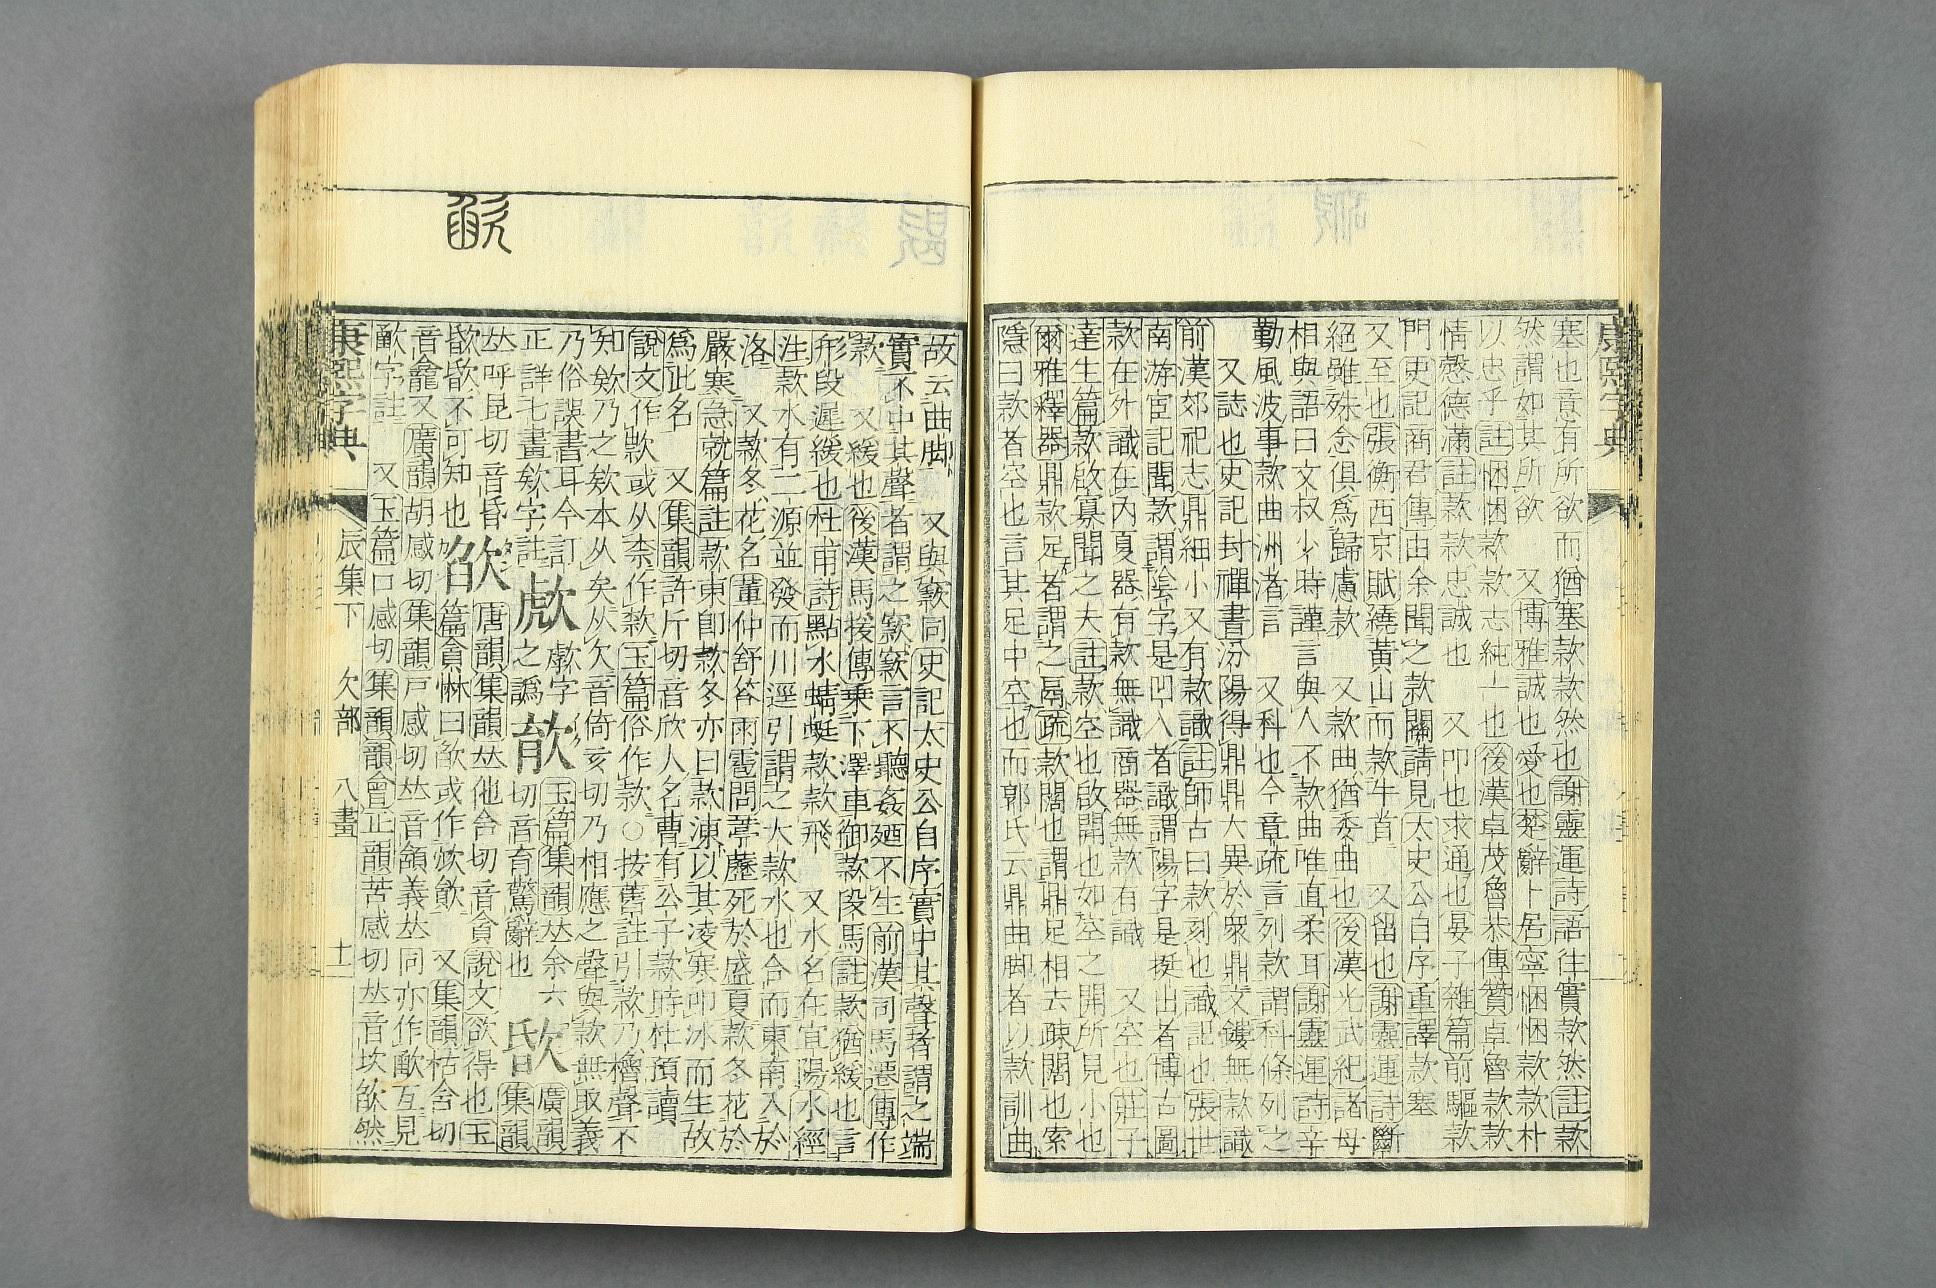 康熙字典
塞也意有所欲而猶塞款款然也謝靈運詩語往實款然註款
然謂如其所欲 又博雅誠也愛也楚辭卜居寧悃悃款款朴
以忠乎註悃悃款款志純一也後漢卓茂魯恭傳贊卓魯款款
情慤德滿註款款忠誠也 又叩也求通也晏子雜篇前驅款
門史記商君傳由余聞之款關請見太史公自序重譯款塞
又至也張衡西京賦繞黃山而款牛首 又留也謝靈運詩斷
絕雖殊念俱爲歸慮款 又款曲猶委曲也後漢光武紀諸母
相與語曰文叔少時謹言與人不款曲唯直柔耳謝靈運詩辛
勤風波事款曲洲渚言 又科也今章疏言列款謂科條列之
又誌也史記封禪書汾陽得鼎鼎大異於衆鼎文鏤無款識
前漢郊祀志鼎細小又有款識註師古曰款刻也識記也張世
南游宦記聞款謂陰字是凹入者識謂陽字是挺出者博古圖
款在外識在內夏器有款無識商器無款有識 又空也莊子
達生篇款啟寡聞之夫註款空也啟開也如空之開所見小也
爾雅釋器鼎款足者謂之鬲疏款闊也謂鼎足相去疎闊也索
隱曰款者空也言其足中空也而郭氏云鼎曲脚者以款訓曲
故云曲脚 又與窾同史記太史公自序實中其聲者謂之端
實不中其聲者謂之窾窾言不聽姦廼不生前漢司馬遷傳作
款 又緩也後漢馬援傳乘下澤車御款段馬註款猶緩也言
形段遲緩也杜甫詩點水蜻蜓款款飛 又水名在宜陽水經
注款水有二源並發而川逕引謂之大款水也合而東南入於
洛 又款冬花名董仲舒答雨雹問葶藶死於盛夏款冬花於
嚴寒急就篇註款東即款冬亦曰款凍以其凌寒叩冰而生故
爲此名 又集韻許斤切音欣人名曹有公子款時杜預讀
說文作 或从柰作 玉篇俗作欵○按舊註引欵乃櫓聲不
知欸乃之欸本从矣从欠音倚亥切乃相應之聲與款無取義
乃俗誤書耳今訂 字 玉篇集韻𠀤余六 廣韻
正詳七畫欸字註 之譌 切音育驚辭也 集韻
𠀤呼昆切音昏 欿 唐韻集韻𠀤他含切音貪說文欲得也玉
不可知也 篇貪惏曰欿或作 又集韻枯含切
音龕又廣韻胡感切集韻戸感切𠀤音頷義𠀤同亦作 互見
字註 又玉篇口感切集韻韻會正韻苦感切𠀤音坎欿然
康熙字典 辰集下 欠部 八畫 十一